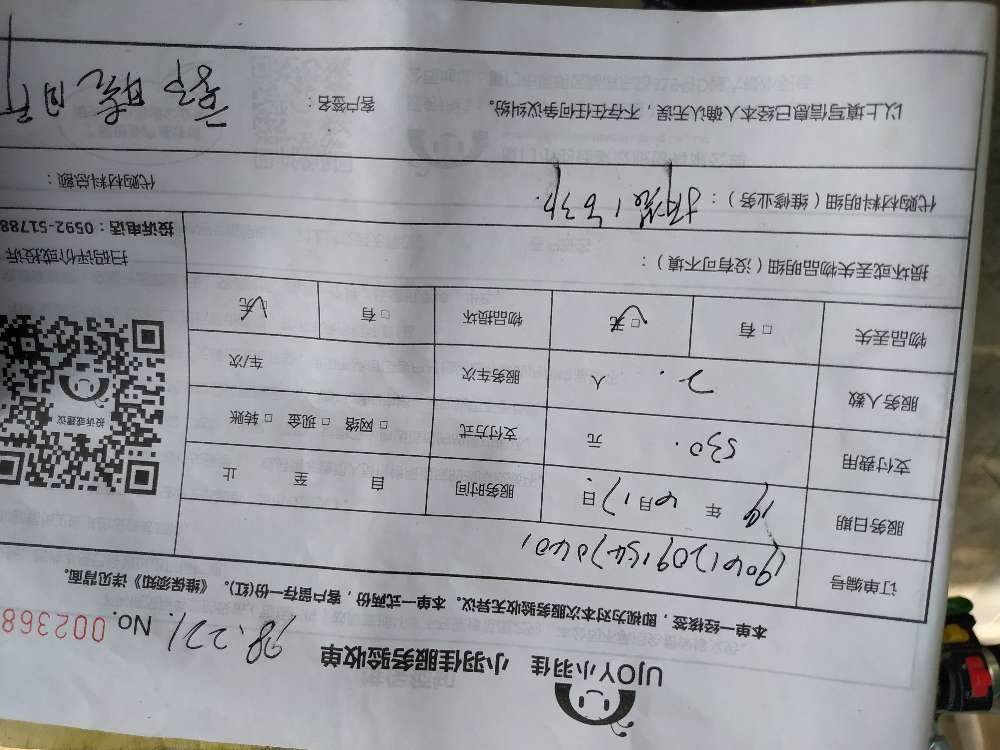 UJOY小羽佳 小羽佳服务验收单
98.221. No. 002368
本单一经接签，即视为对本次服务验收无异议。本单一式两份，客户留存一份(红)。《维保须知》详见背面。
订单编号
服务日期 19 年 6月17日 服务时间 自 至 止
支付费用 530. 元 支付方式 □ 网络 □ 现金 □ 转账
服务人数 2. 人 服务车次 车/次
物品丢失 □ 有 □ 无 物品损坏 □ 有 □ 无
损坏或丢失物品明细（没有可不填）：
代购材料明细（维修业务）：
代购材料总额：
以上填写信息已经本人确认无误，不存在任何争议纠纷。 客户签名：
投诉或建议
扫码评价或投诉
投诉电话：0592-51788